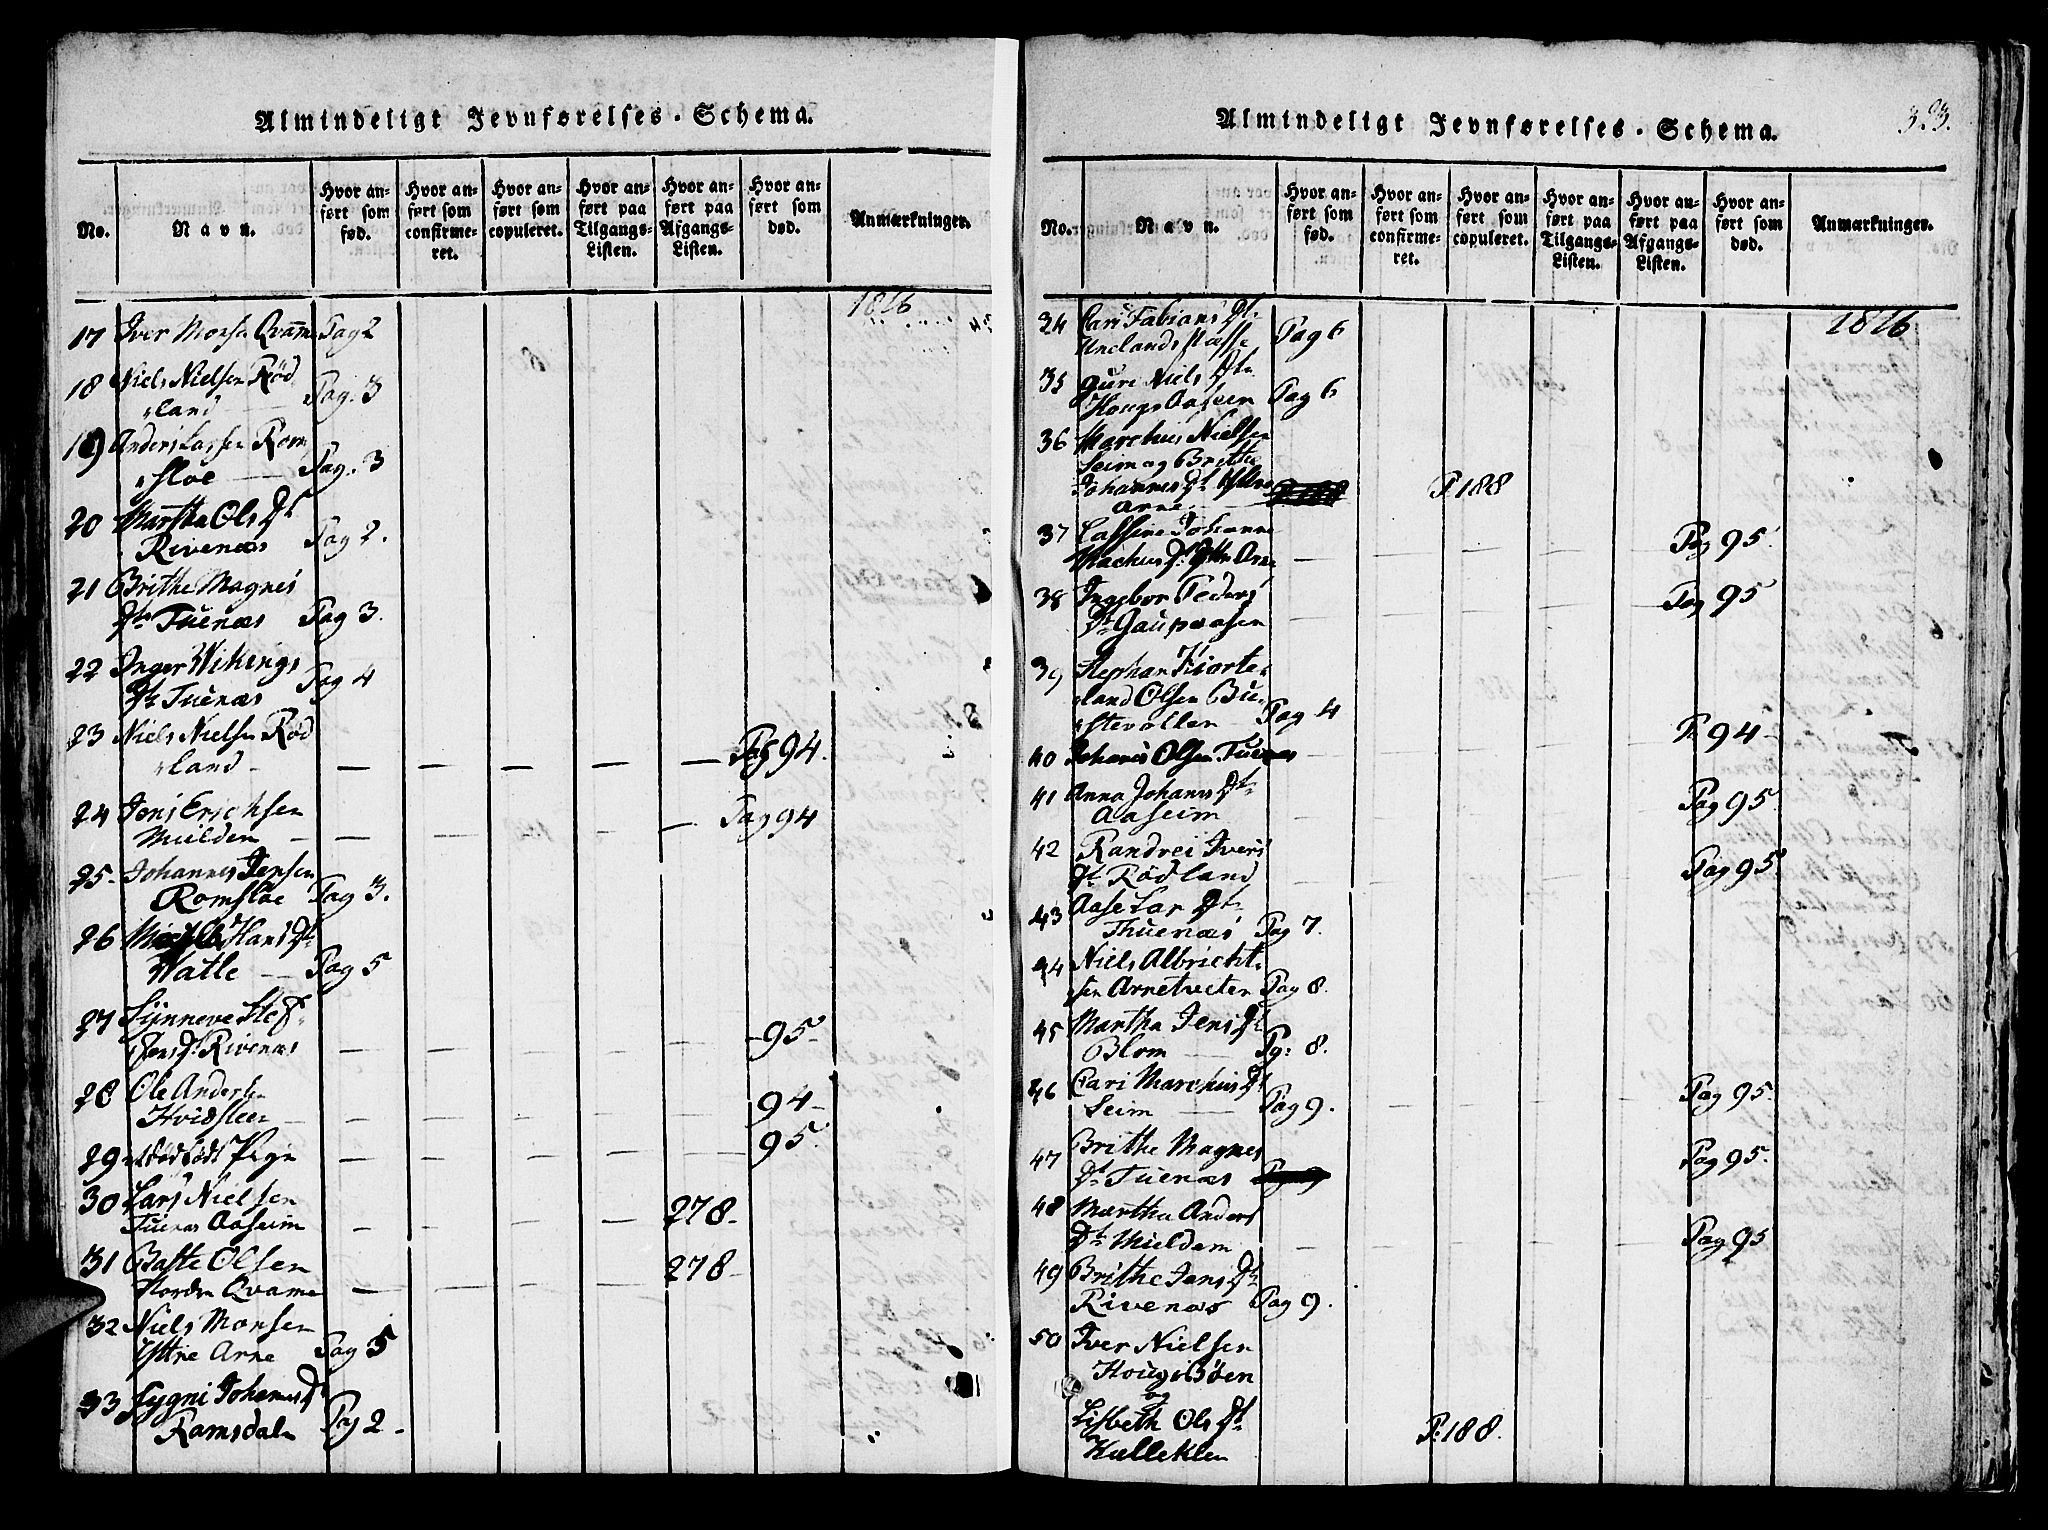 Almindeligt Jevnførelses-Schema.
No.
Navn.
Hvor anført som fød.
Hvor anført som confirmeret.
Hvor anført som copuleret.
Hvor anført paa Tilgangs-Listen.
Hvor anført paa Afgangs-Listen.
Hvor anført som død.
Anmærkninger.
1816
17 Iver Monsen Qvamme Pag 2
18 Niels Nielsen Rød
land Pag. 3
19 Anders Lassen Rom
sloe Pag. 3
20 Martha Ols Dt
Rivenæs Pag 2.
21 Brithe Magnes
Dtr Tuenæs Pag 3.
22 Inger Wikings
Dtr Tuenæs Pag 4
23 Niels Nielsen Rød
land Pag 94.
24 Jens Erichsen
Muilden Pag 94
25. Johannes Jensen
Romsloe Pag 3.
26 Hans Dtr
Watle Pag 5
27 Synneve Stef
fens Dt Rivenæs 95
28 Ole Andersen
Hvidsteen 94
29 dødfødt Pige 95.
30 Lars Nielsen
Tuenæs Aaseim 278.
31 Baste Olsen
Nordre Qvame 278
32 Niels Monsen
Ystre Arne Pag 5
33 Sygni Johannes Dt
Ramsdalen Pag 2
Almindeligt Jevnførelses-Schema.
323.
No.
Navn.
Hvor anført som fød.
Hvor anført som confirmeret.
Hvor anført som copuleret.
Hvor anført paa Tilgangs-Listen.
Hvor anført paa Afgangs-Listen.
Hvor anført som død.
Anmærkninger.
1816
34 Cari Fabians Dt.
Unelands Pag 6
35 Guri Niels Dtr
Houge Aaseen Pag 6
36 Marchus Nielsen
Seim og Brithe
Johannes Dt Ystre
Arne P. 188
37 Cassine Johanne
Machus Dt Ystre Arne Pag 95.
38 Ingebor Peders
Dt Gaupaasen Pag 95
39 Stephan Kiorte
land Olsen Bu
stevollen Pag 4
40 Johanes Olsen Tuenæs P. 94
41 Anna Johans Dt.
Aaseim Pag 95
42 Randvei Ivers
Dt Rødland Pag 95
43 Aase Lar Dt.
Thuenæs Pag 7.
44 Niels Albricht
sen Arnetveten Pag 8.
45 Martha Jens Dt
Blom Pg: 8.
46 Cari Marchus Dt
Seim Pag 9. Pag 95.
47 Brithe Magnes
Dt Tuenæs Pag 95.
48 Martha Anders
Dt. Mieldem Pag 95
49 Brithe Jens Dtr
Rivenæs Pag 9.
50 Iver Nielsen
Hougs Bøen
og
Lisbeth Ols Dt
Kulleklen P. 188.